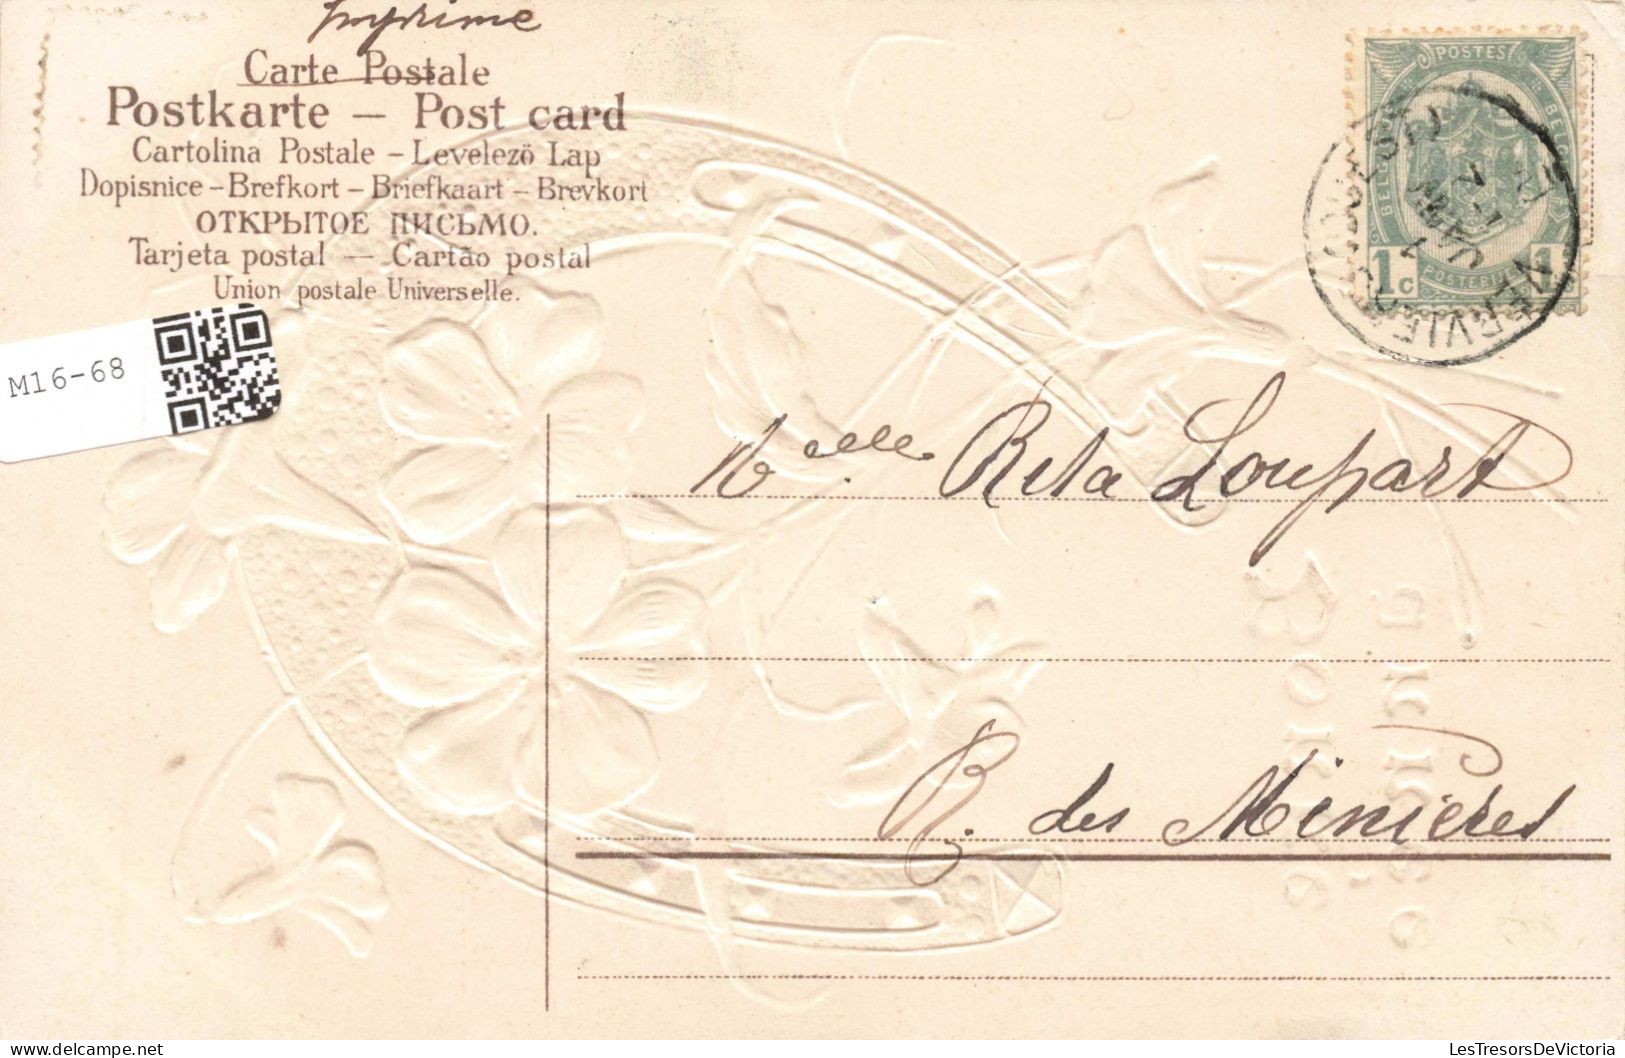 Imprime
Carte Postale
Postkarte — Post card
Cartolina Postale – Levelezö Lap
Dopisnice – Brefkort – Briefkaart – Brevkort
ОТКРЫТОЕ ПИСЬМО.
Tarjeta postal — Cartão postal
Union postale Universelle.
M16-68
POSTES
1c
1
Melle Rita Loupart
R. des Minières
LesTresorsDeVictoria